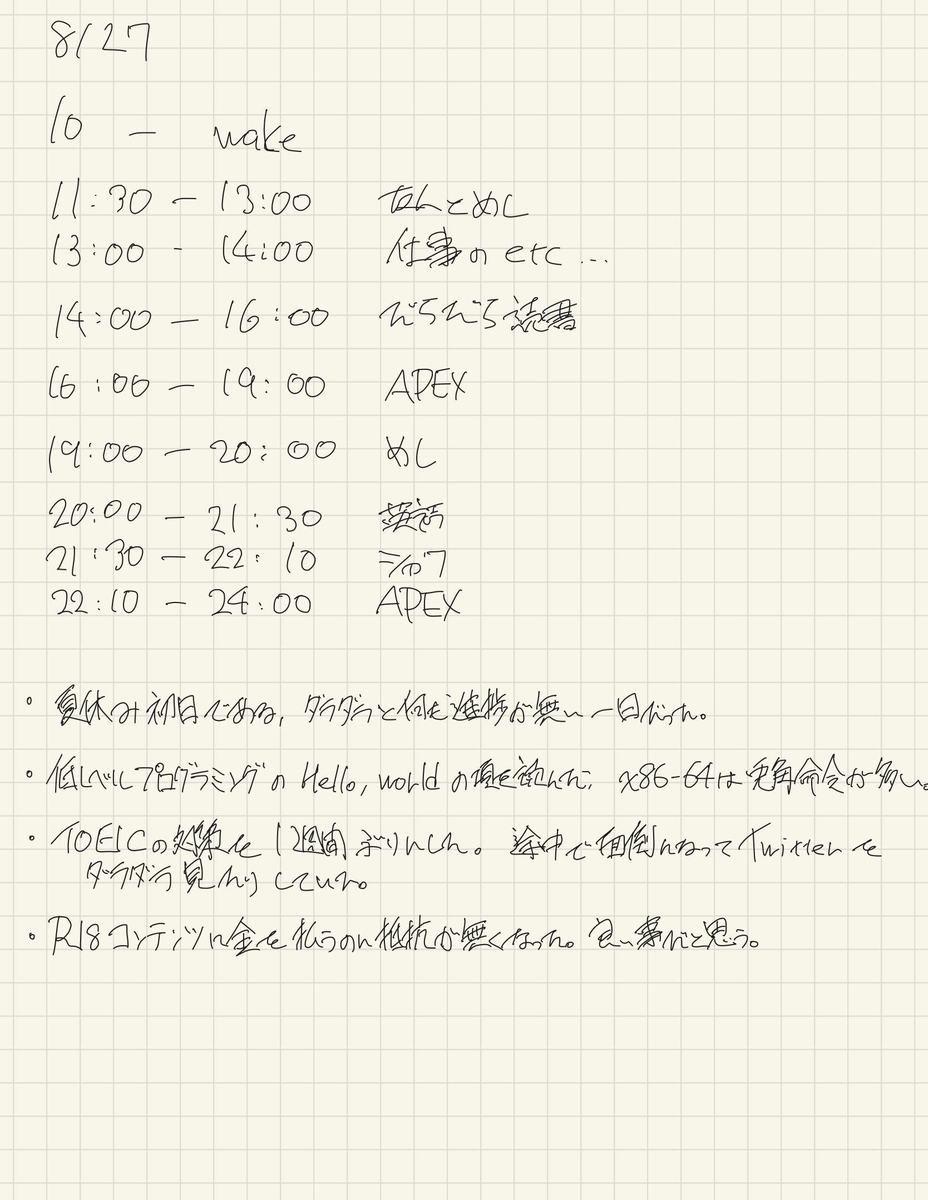 8/27
10 - wake
11:30 - 13:00 めし
13:00 - 14:00 仕事の etc ...
14:00 - 16:00 だらだら読書
16:00 - 19:00 APEX
19:00 - 20:00 めし
20:00 - 21:30 英語
21:30 - 22:10 シャワ
22:10 - 24:00 APEX
・夏休み初日である, ダラダラと何も進捗が無い一日だった。
・低レベルプログラミングの Hello, world の項を読んだ; x86-64は 命令が多い。
・TOEICの対策を 1週間ぶりにした。 途中で面倒になってTwitterを
ダラダラ見たりしていた。
・R18コンテンツに金を払うのに抵抗が無くなった。良い事だと思う。